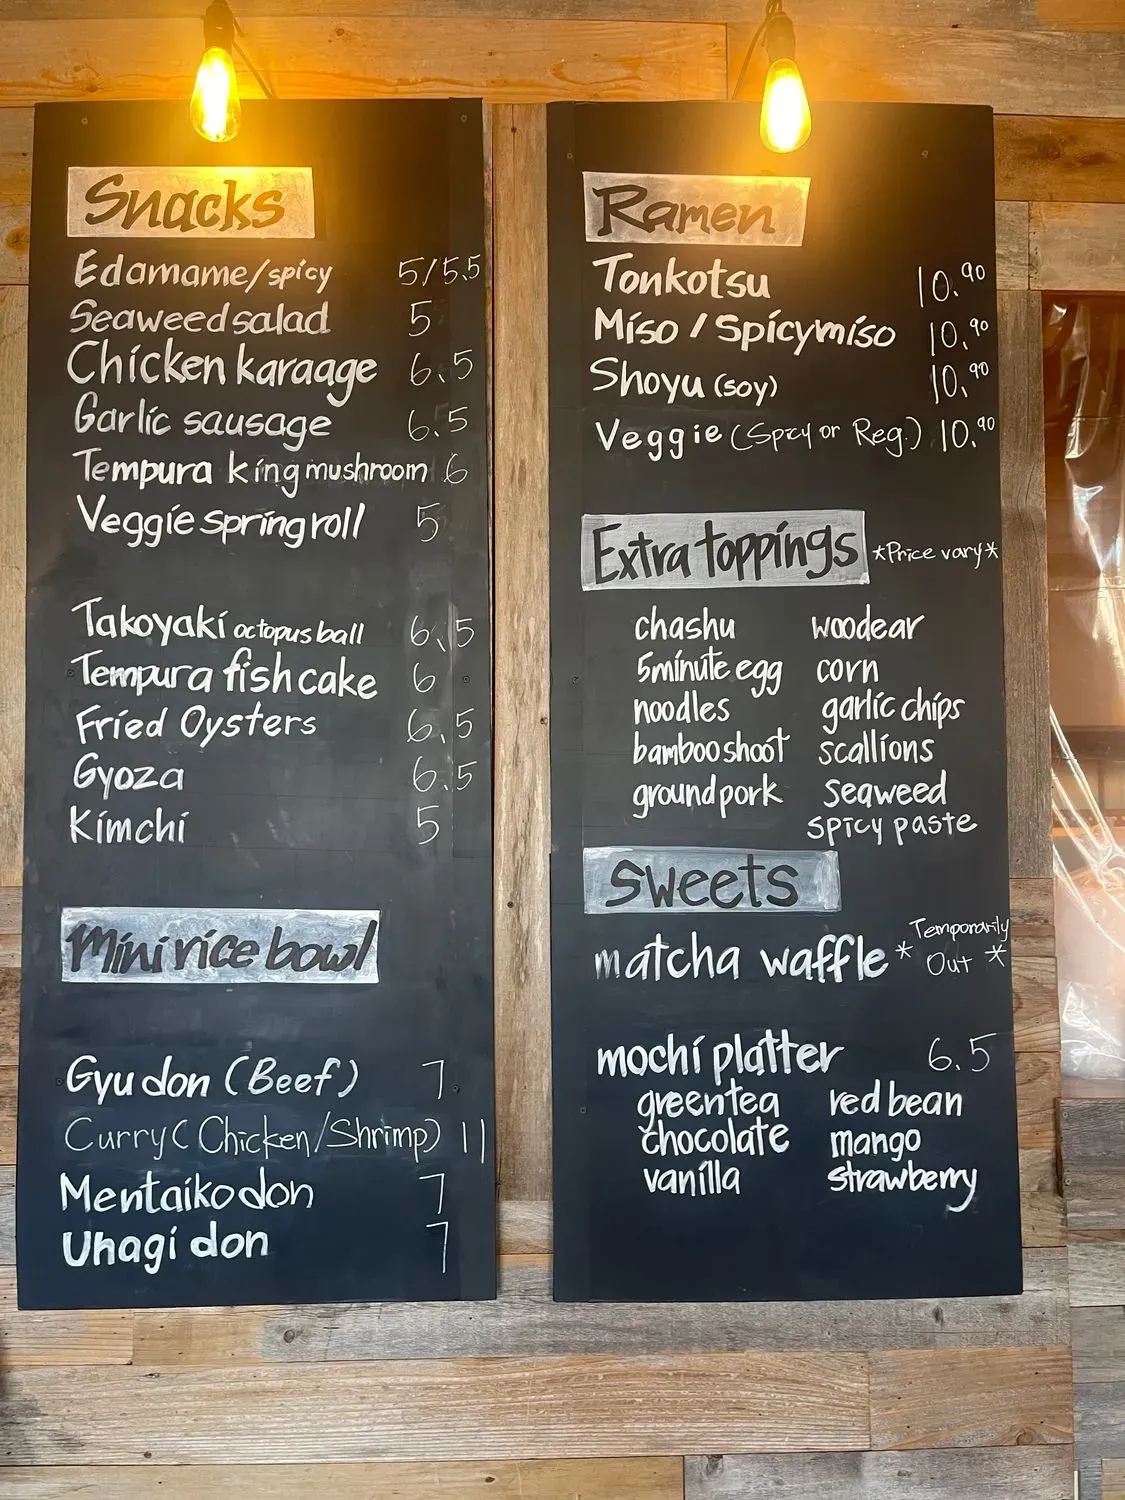 Snacks
Edamame/spicy 5/5.5
Seaweed salad 5
Chicken karaage 6.5
Garlic sausage 6.5
Tempura king mushroom 6
Veggie spring roll 5
Takoyaki octopus ball 6.5
Tempura fish cake 6
Fried Oysters 6.5
Gyoza 6.5
Kimchi 5
Mini rice bowl
Gyu don (Beef) 7
Curry (Chicken/Shrimp) 11
Mentaiko don 7
Unagi don 7
Ramen
Tonkotsu 10.90
Miso / Spicy miso 10.90
Shoyu (soy) 10.90
Veggie (Spicy or Reg.) 10.90
Extra toppings *Price vary*
chashu woodear
5 minute egg corn
noodles garlic chips
bamboo shoot scallions
ground pork seaweed
spicy paste
Sweets
matcha waffle * Temporarily Out *
mochi platter 6.5
greentea red bean
chocolate mango
vanilla strawberry